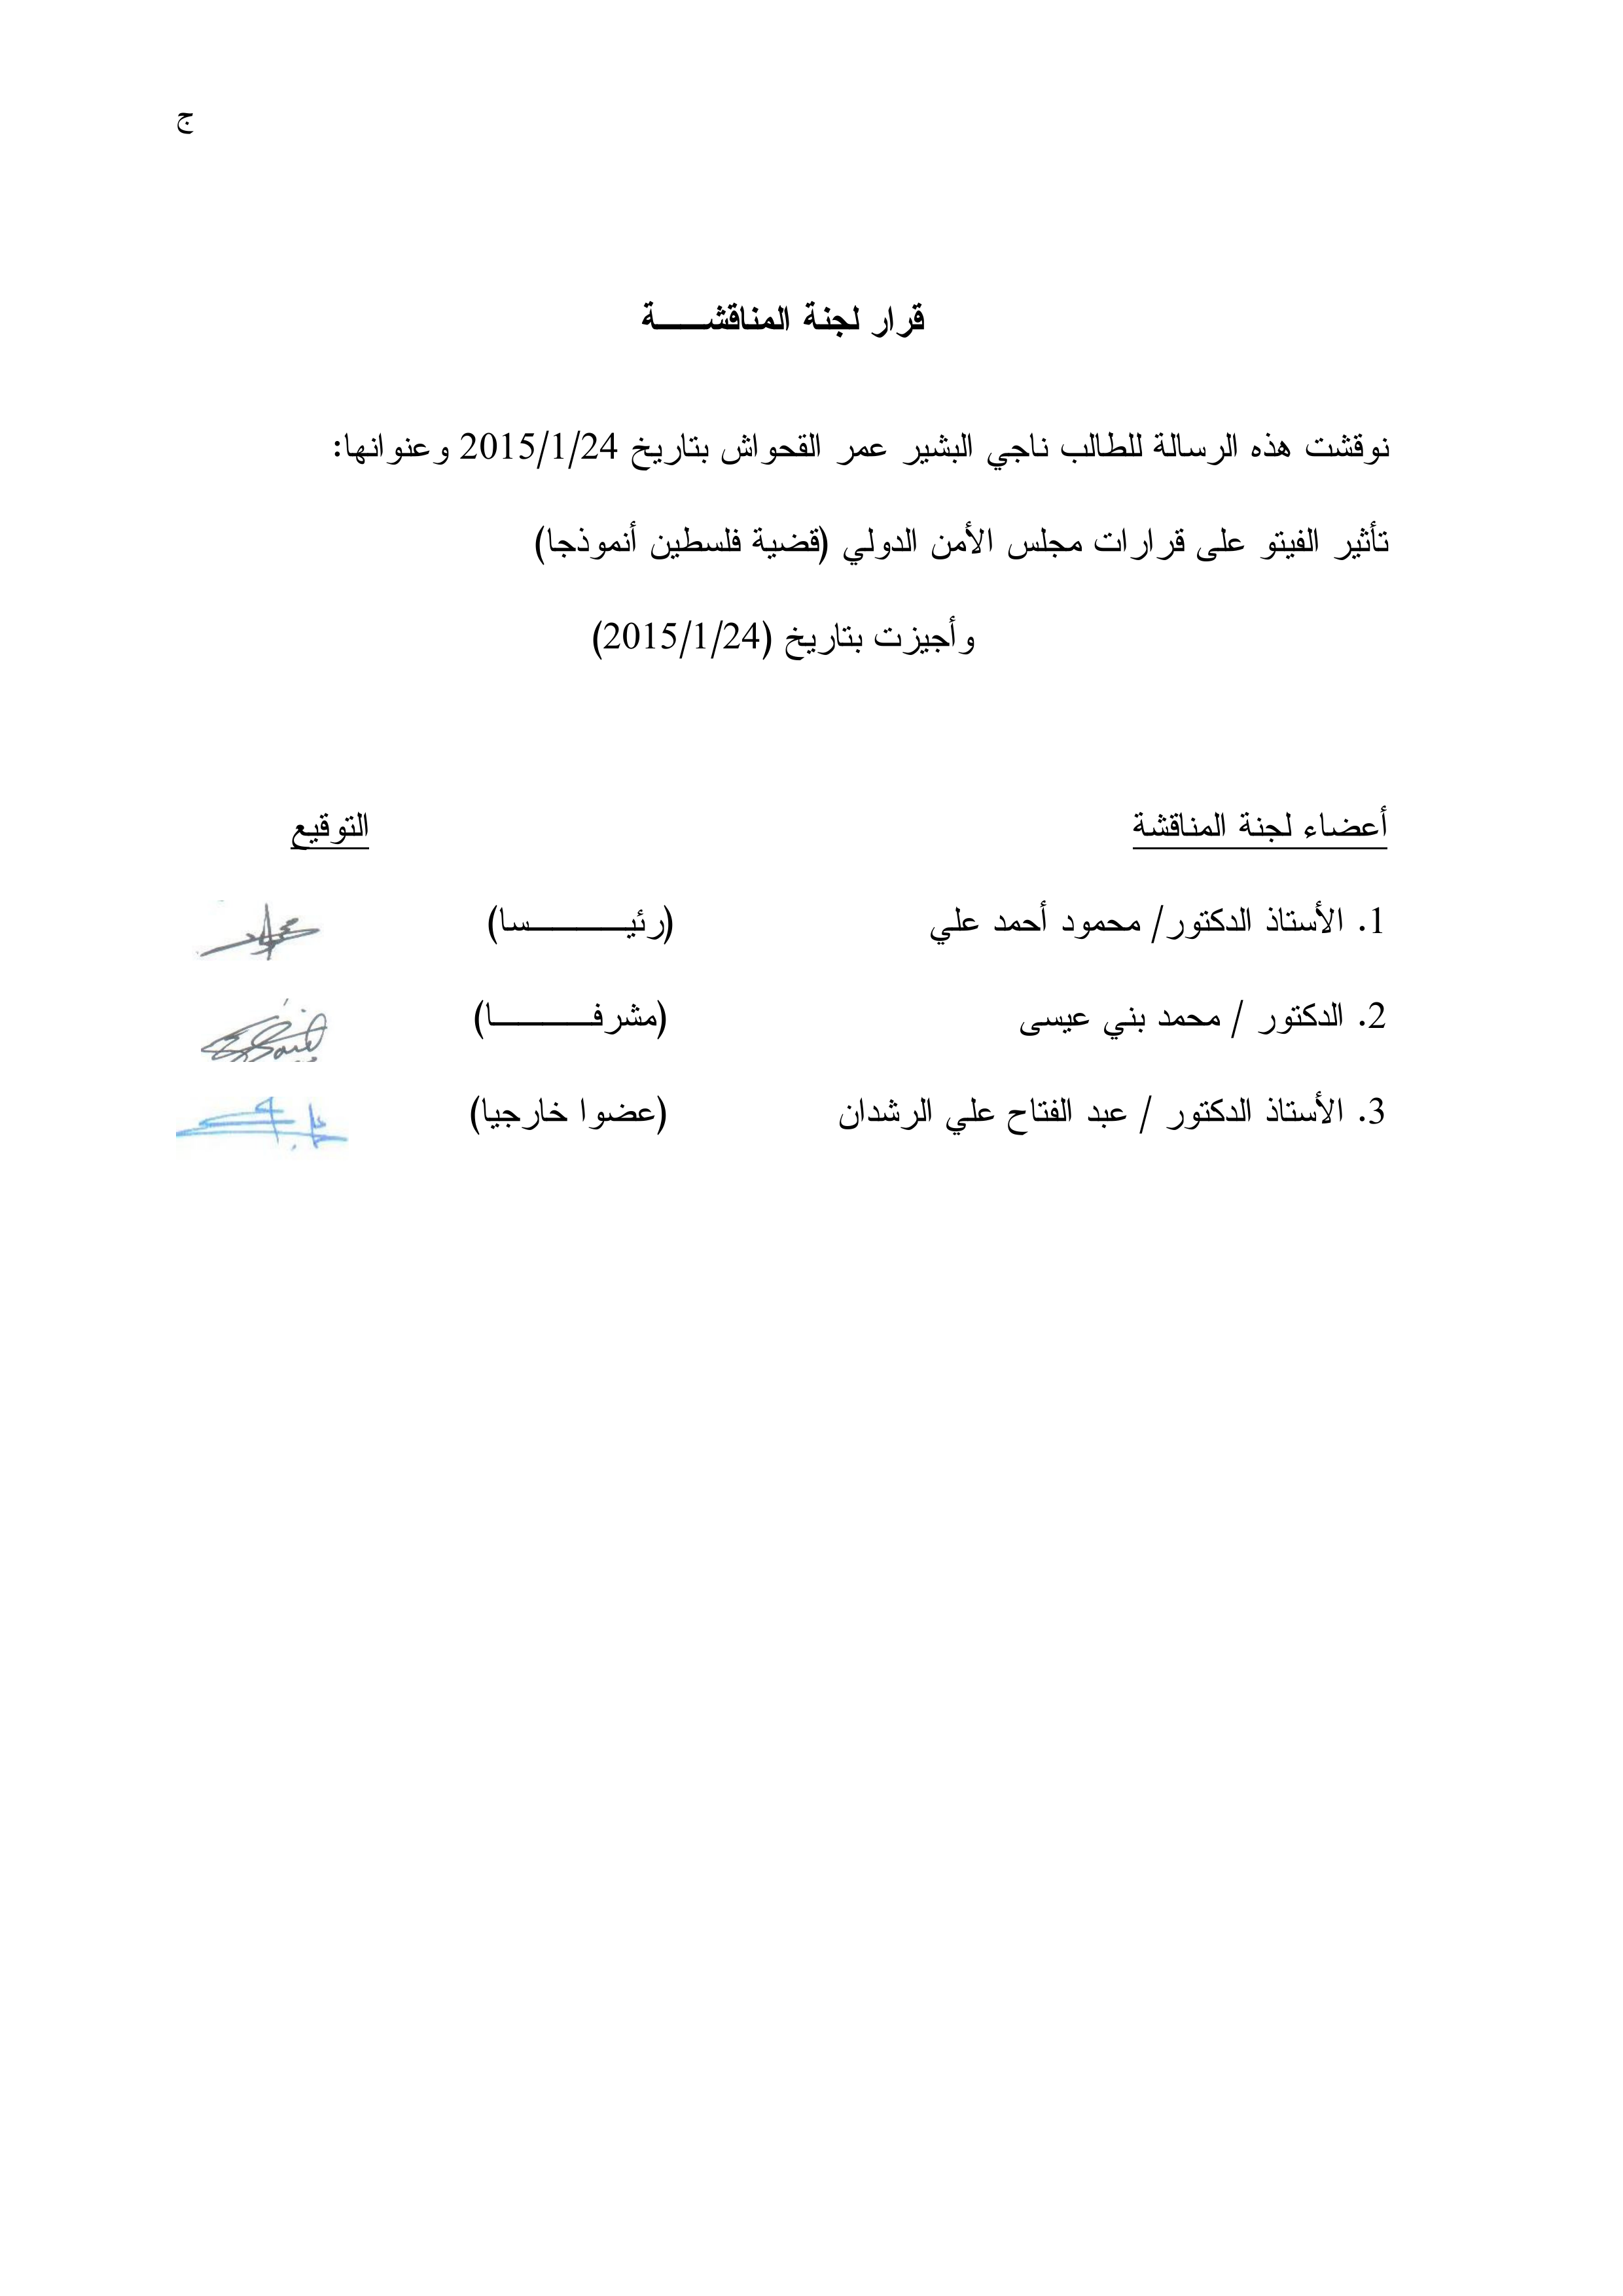 ج
قرار لجنة المناقشـــــة
نوقشت هذه الرسالة للطالب ناجي البشير عمر القحواش بتاريخ 2015/1/24 وعنوانها:
تأثير الفيتو على قرارات مجلس الأمن الدولي (قضية فلسطين أنموذجا)
وأجيزت بتاريخ (2015/1/24)
أعضاء لجنة المناقشة التوقيع
1. الأستاذ الدكتور/ محمود أحمد علي (رئيـــــــــــسا)
2. الدكتور / محمد بني عيسى (مشرفـــــــــــا)
3. الأستاذ الدكتور / عبد الفتاح علي الرشدان (عضوا خارجيا)